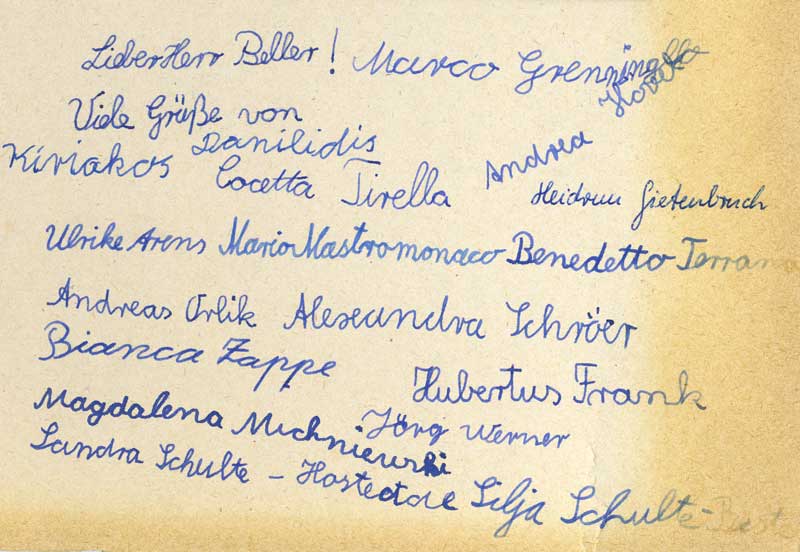 Lieber Herr Beller! Marco Grenningloh
Viele Grüße von
Kiriakos Danilidis Cocetta Tirella Andrea
Heidrun Gietenbruch
Ulrike Arens Mario Mastromonaco Benedetto
Andreas Orlik Alexandra Schröer
Bianca Zappe
Hubertus Frank
Magdalena Michniewski Jörg Werner
Sandra Schulte - Silja Schulte-